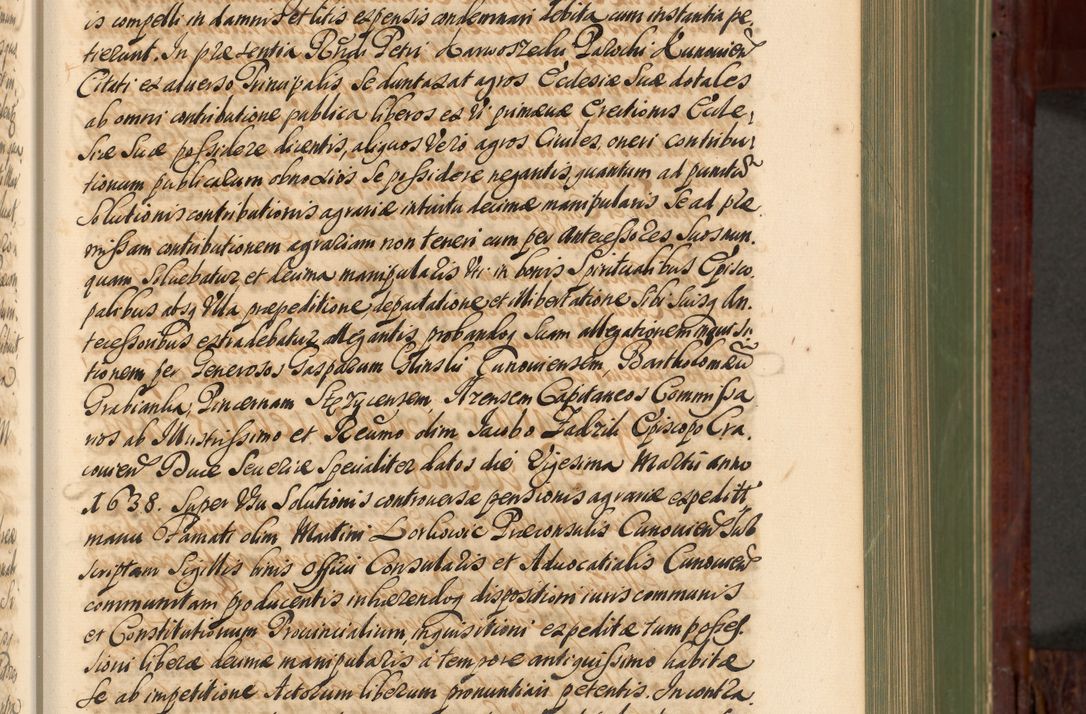 is compelli in damnis et litis expensis condemnari debita cum instantia pe,
tierunt. In præsentia Rñdi Petri Karwoszecki Parochi Cunouien̄
Citati ex aduerso Principalis, se duntaxat agros Ecclesiæ suæ dotales
ab omni contributione publica liberos ex vi primæuæ Erectionis Eccle,
siæ suæ possidere dicentis, aliquos vero agros Ciuiles, oneri contribu,
tionum publicarum obnoxios se possidere negantis, quantum ad punctū
solutionis contributionis agrariæ intuitu decimæ manipularis se ad præ,
missam contributionem agrariam non teneri cum per Antecessores suos nun,
quam soluebatur et decima manipularis vti in bonis Spiritualibus Episco,
palibus absq vlla præpeditione depactatione et illibertatione sibi suisq An,
tecessoribus extradebatur allegantis, probandoq suam allegationem inquisi,
tionem per Generosos Gasparum Cunouiensem, Bartholomæū
Grabianka, Pincernam Capitaneos Commissa
rios ab Illustrissimo et Reũmo olim Jacobo Zadzik Episcopo Cra,
couien̄ Duce Seueriæ specialiter datos die Vigesima Martii anno
1638. super vsu solutionis controuersæ pensionis agrariæ expeditā
manu Famati olim Martini Proconsulis Cunouien̄ sub
scriptam sigillis binis officii Consularis et Aduocatialis Cunouien̄
communitam producentis inhærendoq dispositioni iuris communis
et Constitutionum Prouincialium inquisitioni expeditæ tum posses,
sioni liberæ decimæ manipularis a tempore antiquissimo habitæ
se ab impetitione Actorum liberum pronuntiari petentis. In contra,